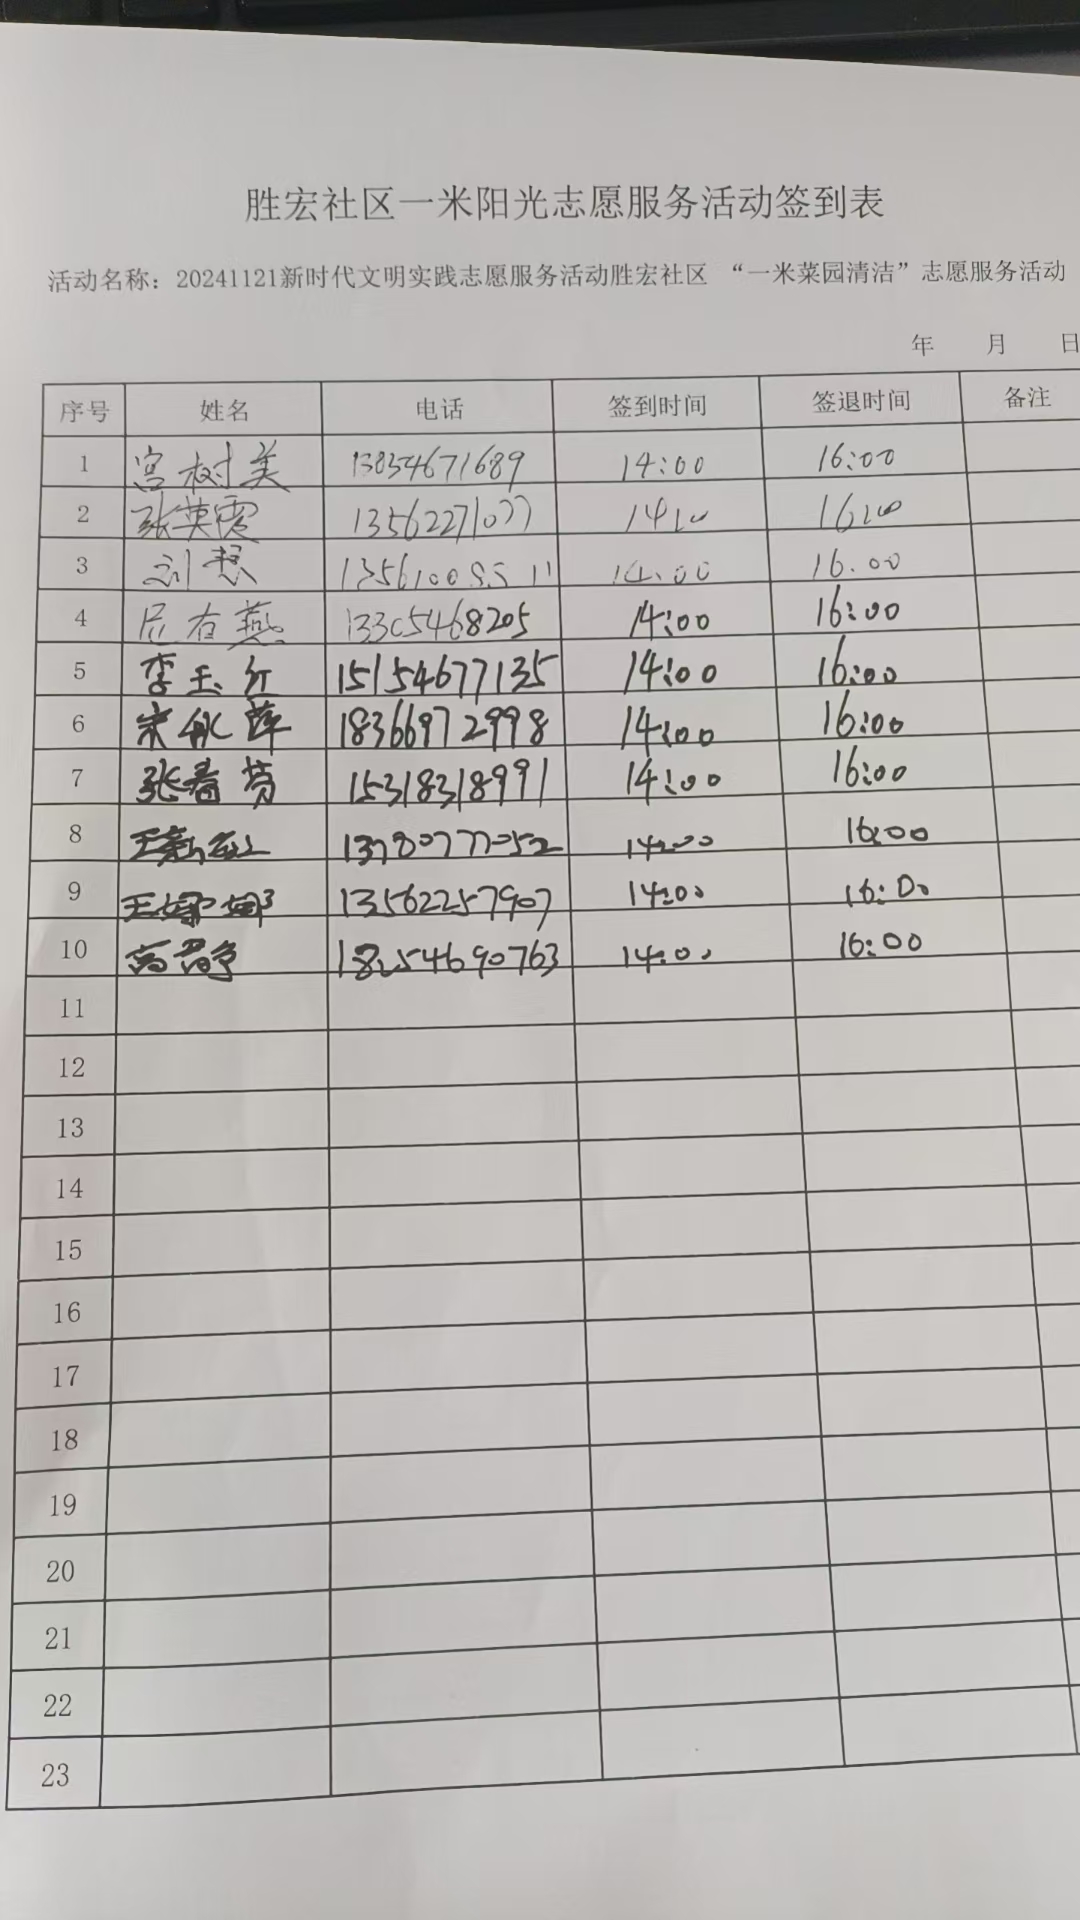 胜宏社区一米阳光志愿服务活动签到表
活动名称：20241121新时代文明实践志愿服务活动胜宏社区 “一米菜园清洁”志愿服务活动
年 月 日
序号 姓名 电话 签到时间 签退时间 备注
1 宫树美 13854671689 14:00 16:00
2 张英霞 13562271077 14:00 16:00
3 刘慧 14.00 16.00
4 尼在燕 13305468205 14:00 16:00
5 李玉红 15154677135 14:00 16:00
6 宋秋萍 18366972998 14:00 16:00
7 张春芳 15318318991 14:00 16:00
8 13780777052 14:00 16:00
9 王婷娜 13562257907 14:00 16:00
10 高静 18254690763 14:00 16:00
11
12
13
14
15
16
17
18
19
20
21
22
23